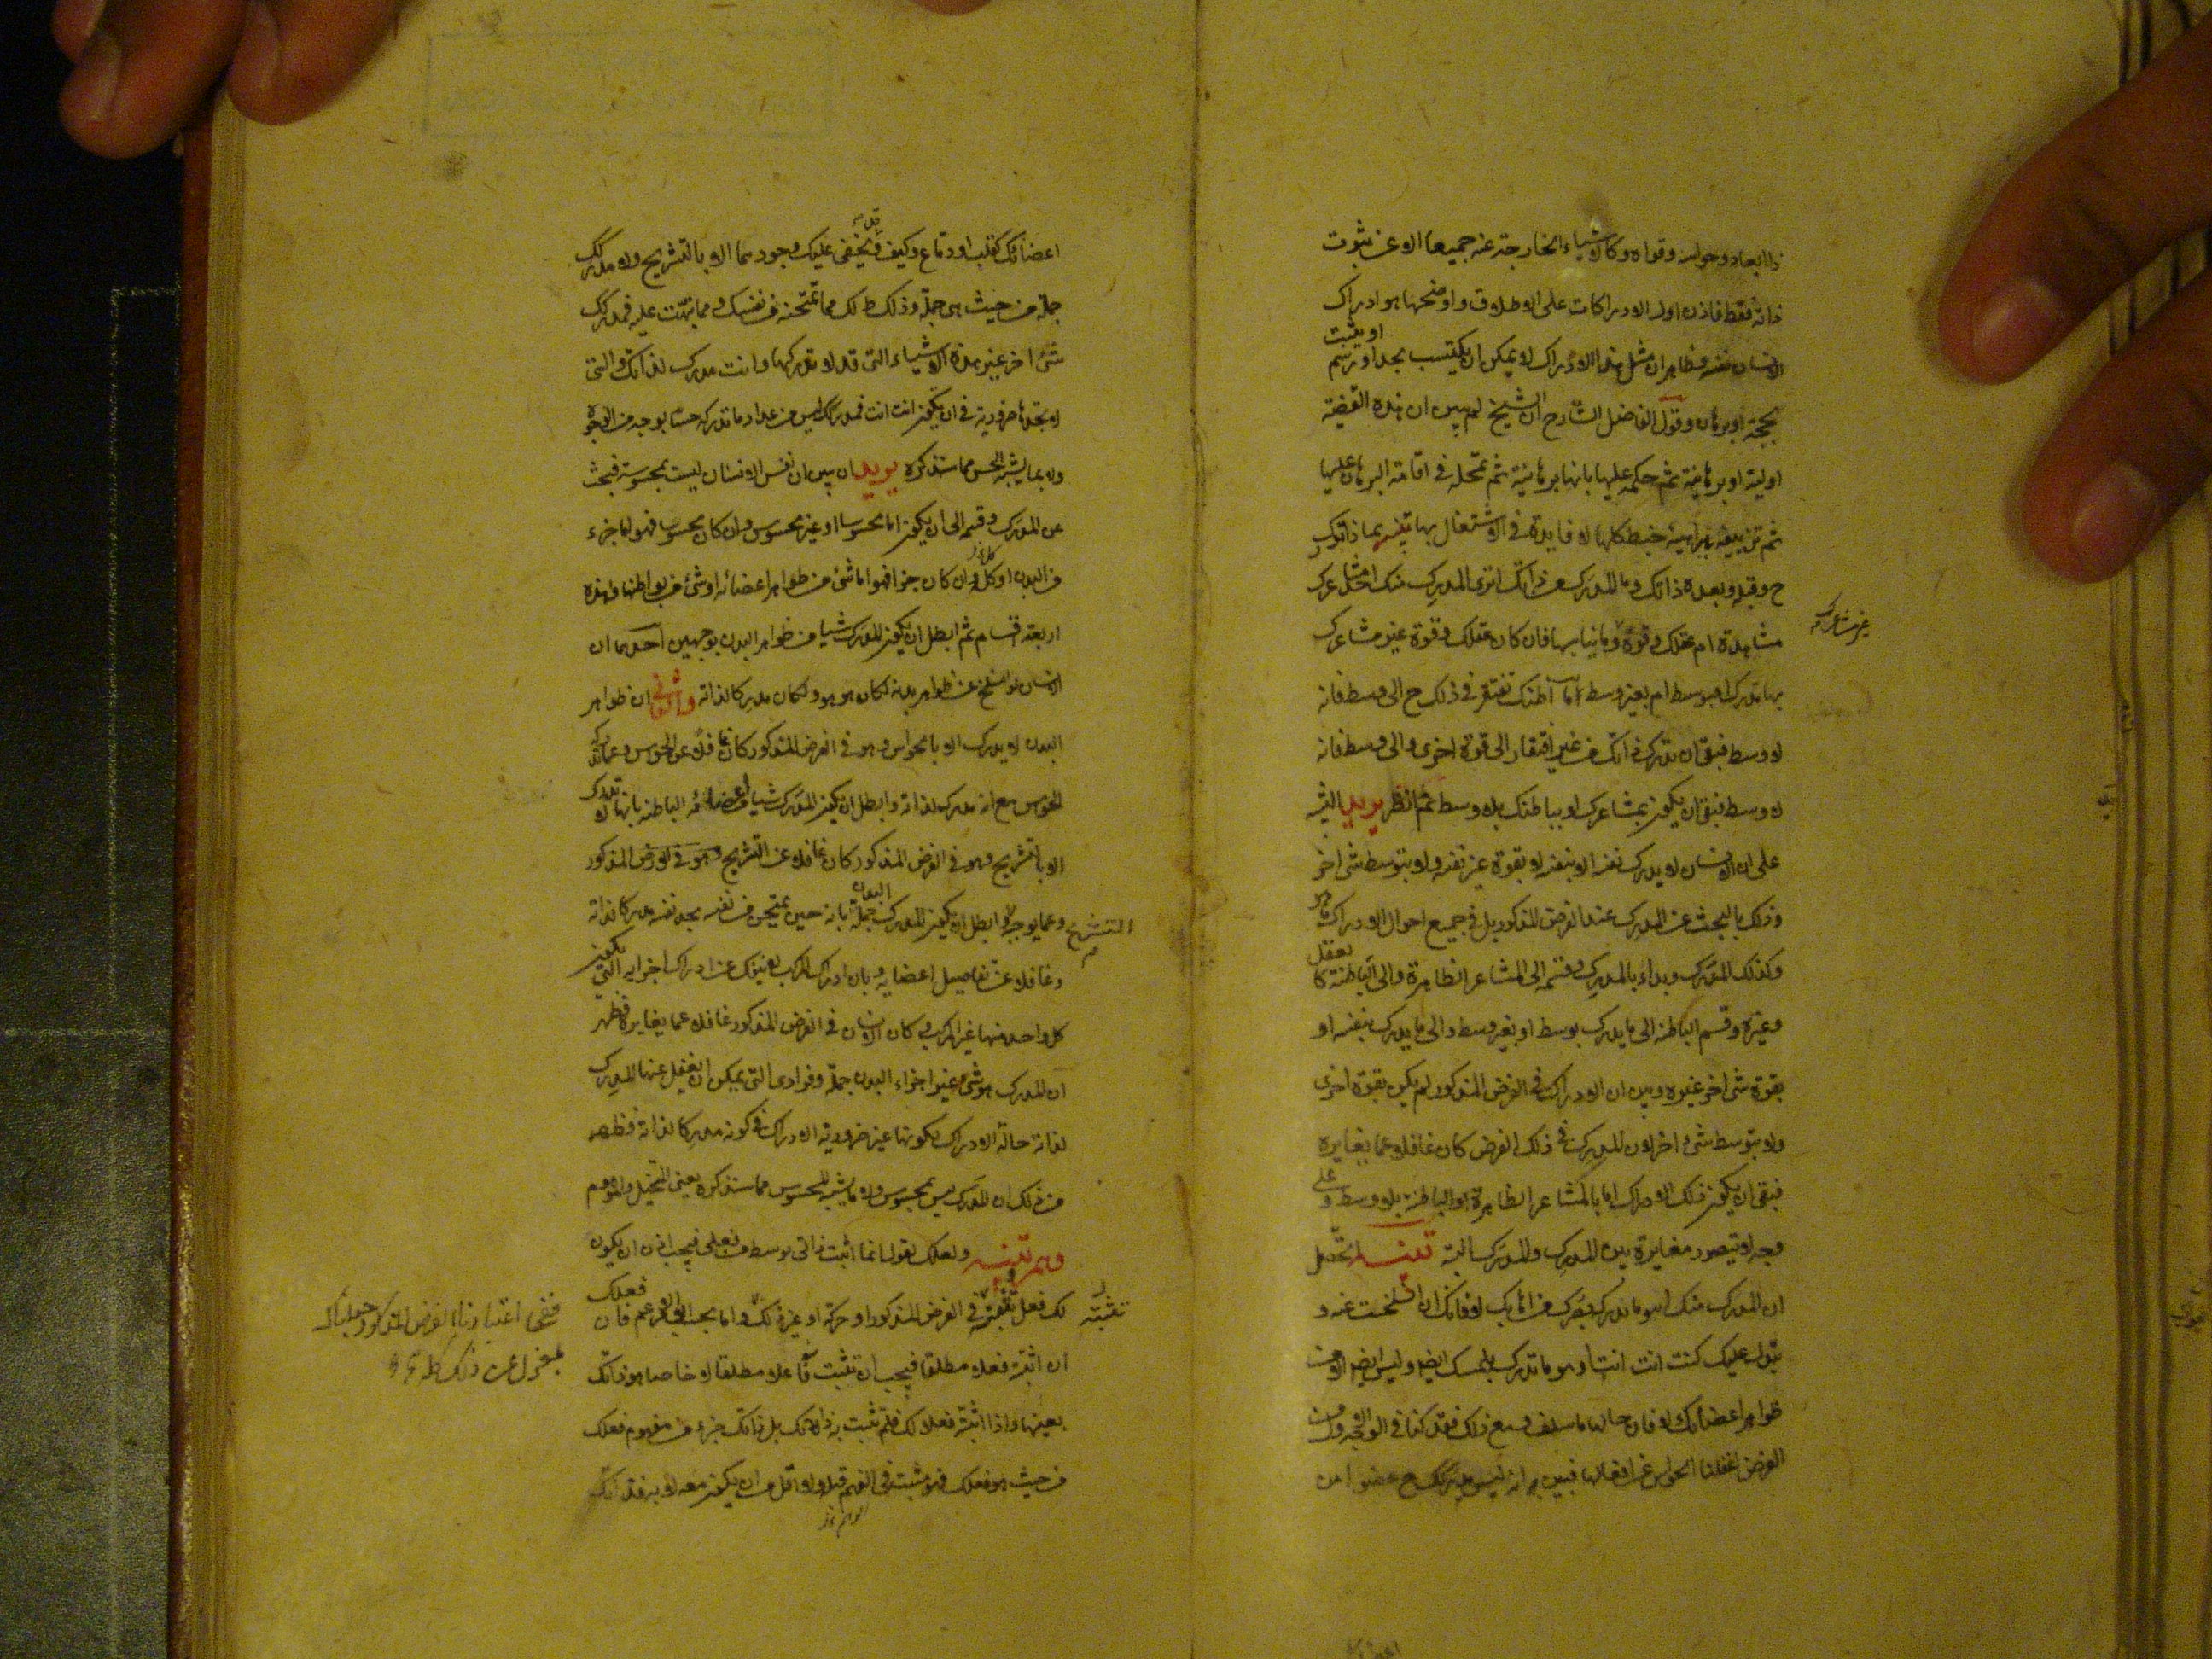 ذا ابعاد وحواسه وقواه وكالاشياء الخارجة عنه جميعا الا عن ثبوت
ذاته فقط فاذن اول الادراكات على الاطلاق واوضحها هو ادراك
الانسان نفسه وظاهر ان مثل هذا الادراك لا يمكن ان يكتسب بحد او رسم
او يثبت
بحجة او برهان وقول الفاضل الشارح ان الشيخ لم يبين ان هذه القضية
اولية او برهانية ثم حكمه عليها بانها برهانية ثم تمحله في اقامة البرهان عليها
ثم تزييفه براهينه خبط كلها لا فايدة في الاشتغال بها تنبيه بماذا تدرك
ح وقبله وبعده ذاتك وما المدرك من ذاتك اترى المدرك منك احد مشاعرك
مشاهدة ام عقلك وقوة وما يناسبها فان كان عقلك وقوة غير مشاعرك
غير مشاعرك
بها تدرك افبوسط ام بغير وسط ما اظنك تفتقر في ذلك ح الى وسط فانه
لا وسط فبقى ان تدرك ذاتك من غير افتقار الى قوة اخرى والى وسط فانه
لا وسط فبقى ان يكون بمشاعرك او بباطنك بلا وسط ثم انظر يريد التنبيه
على ان الانسان لا يدرك نفسه الا بنفسه لا بقوة غير نفسه ولا بتوسط شئ اخر
وذلك بالبحث عن المدرك عند الفرض المذكور بل في جميع احوال الادراك ما هو
وكذلك المدرك وبداء بالمدرك وقسمه الى المشاعر الظاهرة والى الباطنة كا
لعقل
وغيره وقسم الباطنة الى ما يدرك بوسط او بغير وسط والى ما يدرك بنفسه او
بقوة شئ اخر غيره وبين ان الادراك في الفرض المذكور لم يكن بقوة اخرى
ولا بتوسط شئ اخر لان المدرك في ذلك الفرض كان غافلا عما يغايره
فبقى ان يكون ذلك الادراك اما بالمشاعر الظاهرة او الباطنة بلا وسط وعلى
وجه لا يتصور مغايرة بين المدرك والمدرك البتة تنبيه اتحصل
ان المدرك منك اهو ما يدركه بصرك من اهابك لا فانك ان انسلخت عنه و
تبدل عليك كنت انت انت او هو ما تدركه بلمسك ايضا وليس ايضا الا من
ظواهر اعضائك لا فان حالها ما سلف ومع ذلك فقد كنا في الوجه الاول من
الفرض اغفلنا الحواس عن افعالها فبين انه ليس مدركك ح عضوا من
اعضائك كقلب او دماغ وكيف ويخفى عليك وجودهما الا بالتشريح ولا مدركك
جملة من حيث هى جملة وذلك ظ لك مما تمتحنه من نفسك ومما نبهت عليه فمدركك
شئ اخر غير هذه الاشياء التى قد لا تدركها وانت مدرك لذاتك والتى
لا تجدها ضرورية في ان يكون انت انت فمدركك ليس من عداد ما تدركه حسا بوجه من الوجوه
ولا بما يشبه الحس مما سنذكره يريد ان يبين ان نفس الانسان ليست بمحسوسة فبحث
عن المدرك وقسمه الى ان يكون اما محسوسا او غير محسوس وان كان محسوسا فهو اما جزء
من البدن او كله وان كان جزا فهو اما شئ من ظواهر اعضائه او شئ من بواطنها وهذه
اربعة اقسام ثم ابطل ان يكون المدرك شيا من ظواهر البدن بوجهين احدهما ان
الانسان لو انسلخ عن ظواهر بدنه لكان هو هو ولكان مدركا لذاته والثانى ان ظواهر
البدن لا يدرك الا بالحواس وهو في الفرض المذكور كان غافلا عن الحواس وعما تدركه
الحواس مع انه مدرك لذاته وابطل ان يكون المدرك شيا من اعضائه الباطنة بانها لا تدرك
الا بالتشريح وهو في الفرض المذكور كان غافلا عن التشريح وهو في الفرض المذكور
التشريح
وعما يوجبه وابطل ان يكون المدرك جملة البدن بانه حين يمتحن من نفسه يجد نفسه مدركا لذاته
وغافلا عن تفاصيل اعضايه وبان ادراك المركب لا ينفك عن ادراك اجزايه التى يكون
كل واحد منها غير المركب وكان الانسان في الفرض المذكور غافلا عما يغايره فظهر
ان المدرك هو شئ غير اجزاء البدن جملة وفرادى التى يمكن ان يغفل عنها المدرك
لذاته حالة الادراك لكونها غير ضرورية الادراك في كونه مدركا لذاته فظهر
من ذلك ان المدرك ليس بمحسوس ولا ما يشبه المحسوس مما سنذكره يعنى المتخيل والموهوم
وهم وتنبيه ولعلك تقول انما اثبت ذاتى بوسط من فعلى فيجب اذن ان يكون
لك فعل تثبته في الفرض المذكور او حركة او غير ذلك واما بحسب الامر الاعم فان فعلك
تثبته
ففى اعتبارنا الفرض المذكور جعلناك
بمعزل عن ذلك
ان اثبته فعلا مطلقا فيجب ان تثبت فاعلا مطلقا لا خاصا هو ذاتك
بعينها واذا اثبته فعلا لك فلم تثبت به ذاتك بل ذاتك جزء من مفهوم فعلك
من حيث هو فعلك فهو مثبت في الفهم قبله ولا اقل من ان يكون معه لا به فذاتك